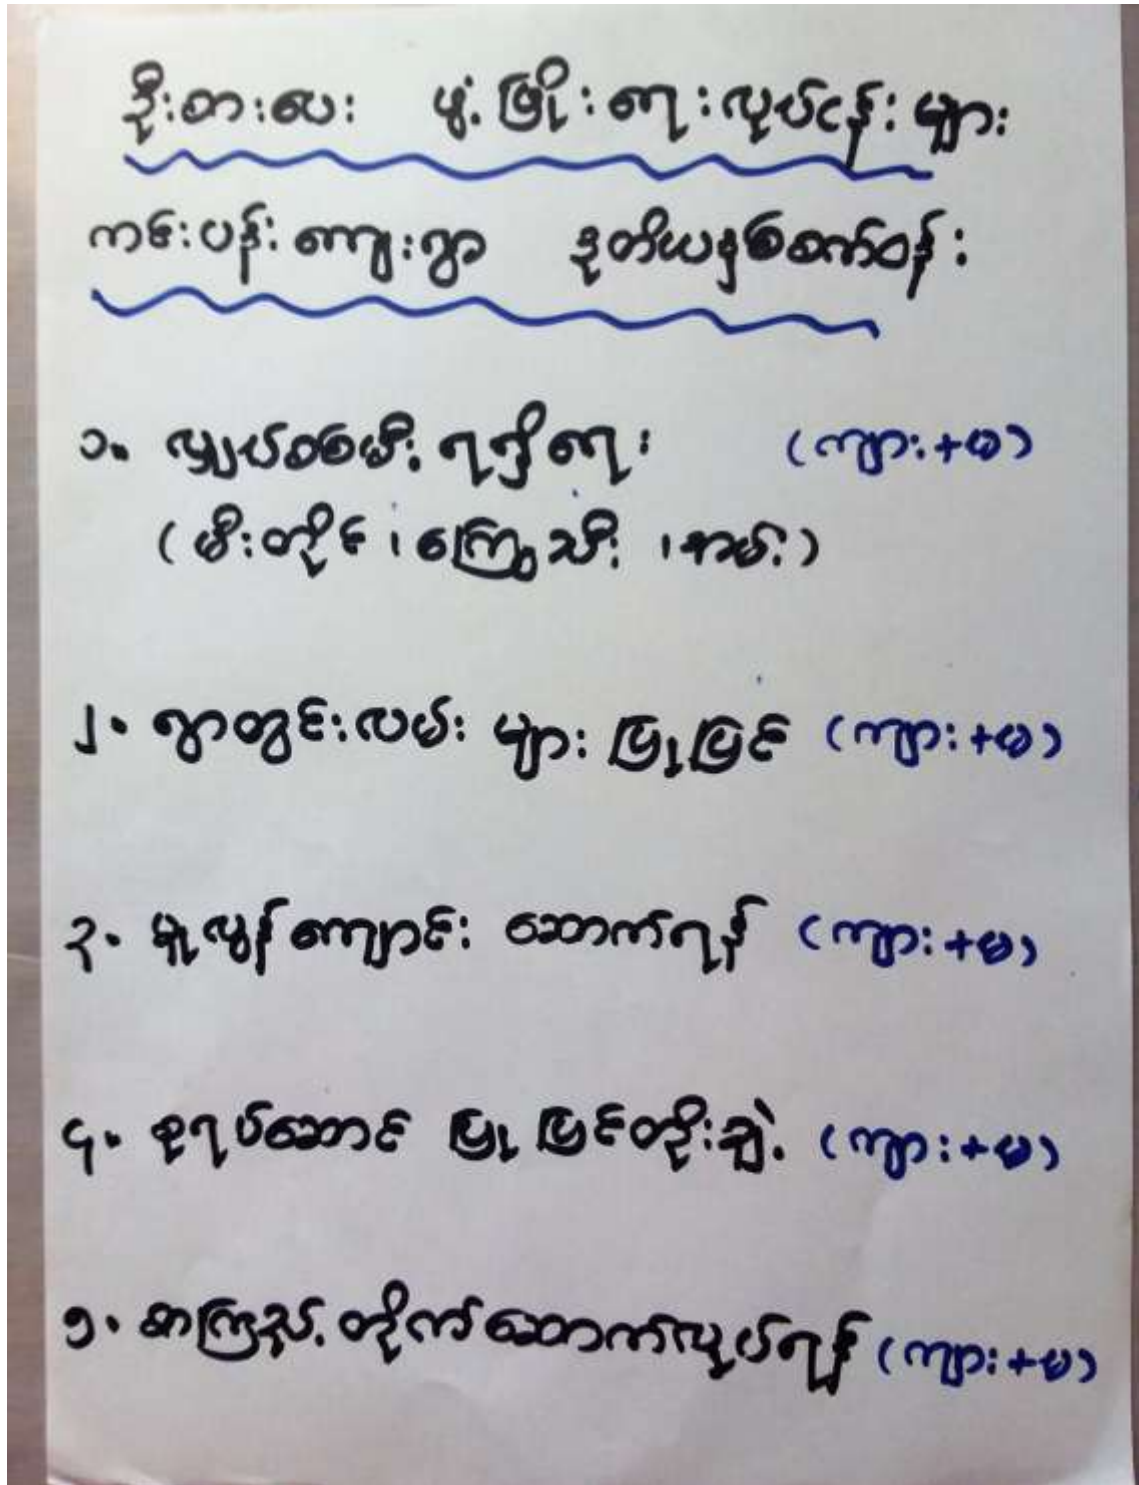 ဦးစားပေး ဖွံ့ဖြိုးရေးလုပ်ငန်းများ
ကင်းပွန်းကျေးရွာ ဒုတိယနှစ်စက်ဝန်း
၁။ လျှပ်စစ်မီး ရရှိရေး (ကျား+မ)
(မီးတိုင်၊ ကြေးသီး၊ စာမီး)
၂။ ရွာတွင်းလမ်းများ ပြုပြင် (ကျား+မ)
၃။ မူလွန်ကျောင်း ဆောက်ရန် (ကျား+မ)
၄။ စုရပ်ဆောင် ပြုပြင်တိုးချဲ့ (ကျား+မ)
၅။ စာကြည့်တိုက်ဆောက်လုပ်ရန် (ကျား+မ)